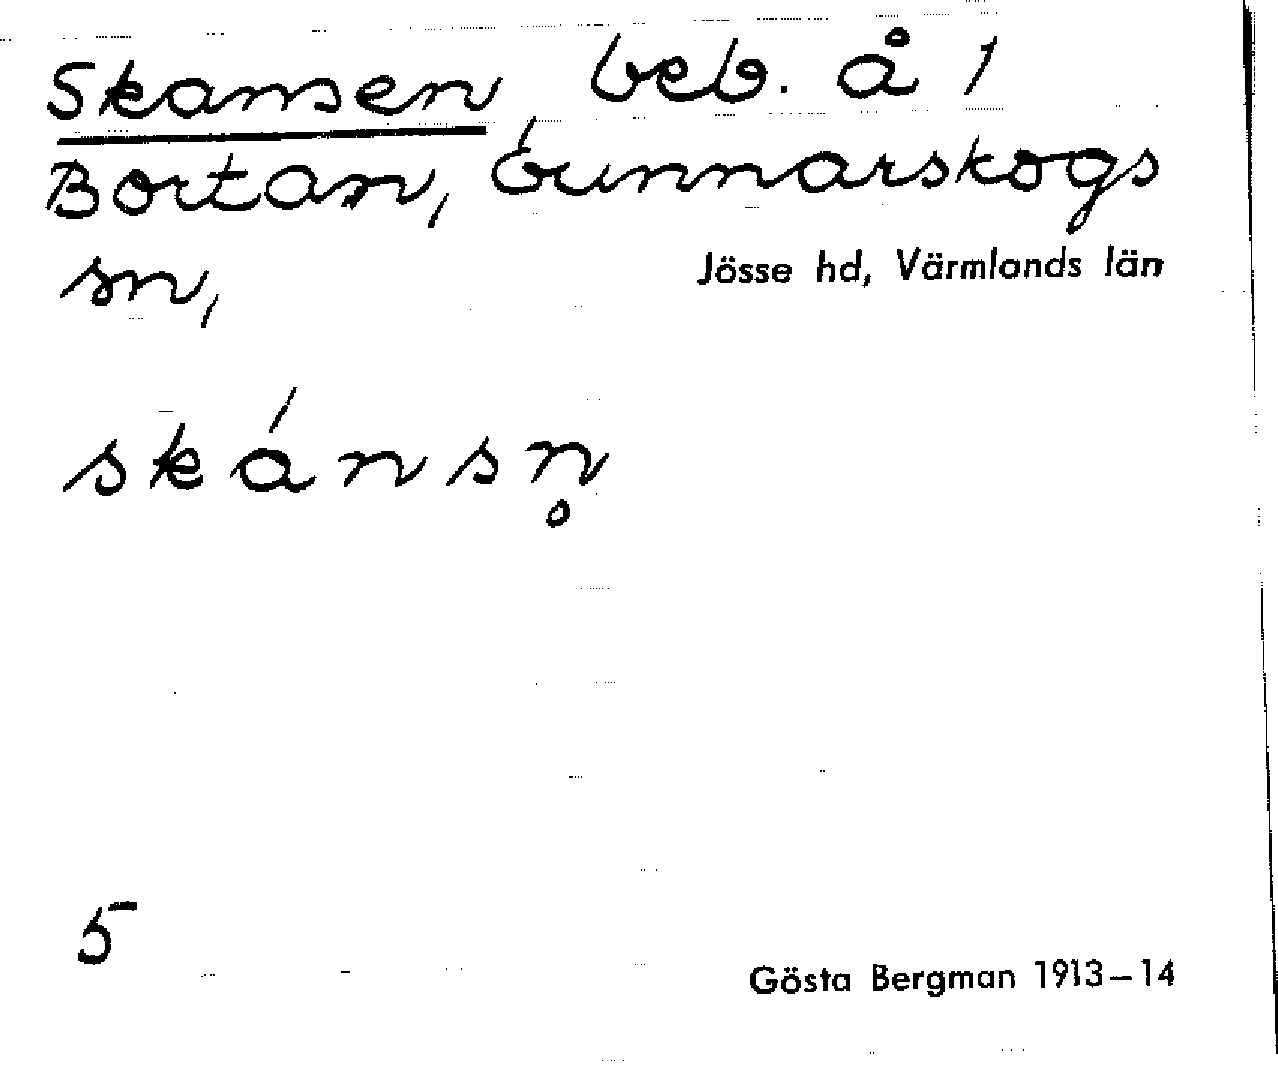 Skansen beb. å 1
Bortan, Gunnarskogs
sn,
Jösse hd, Värmlands län
skánsn̥
5
Gösta Bergman 1913–14